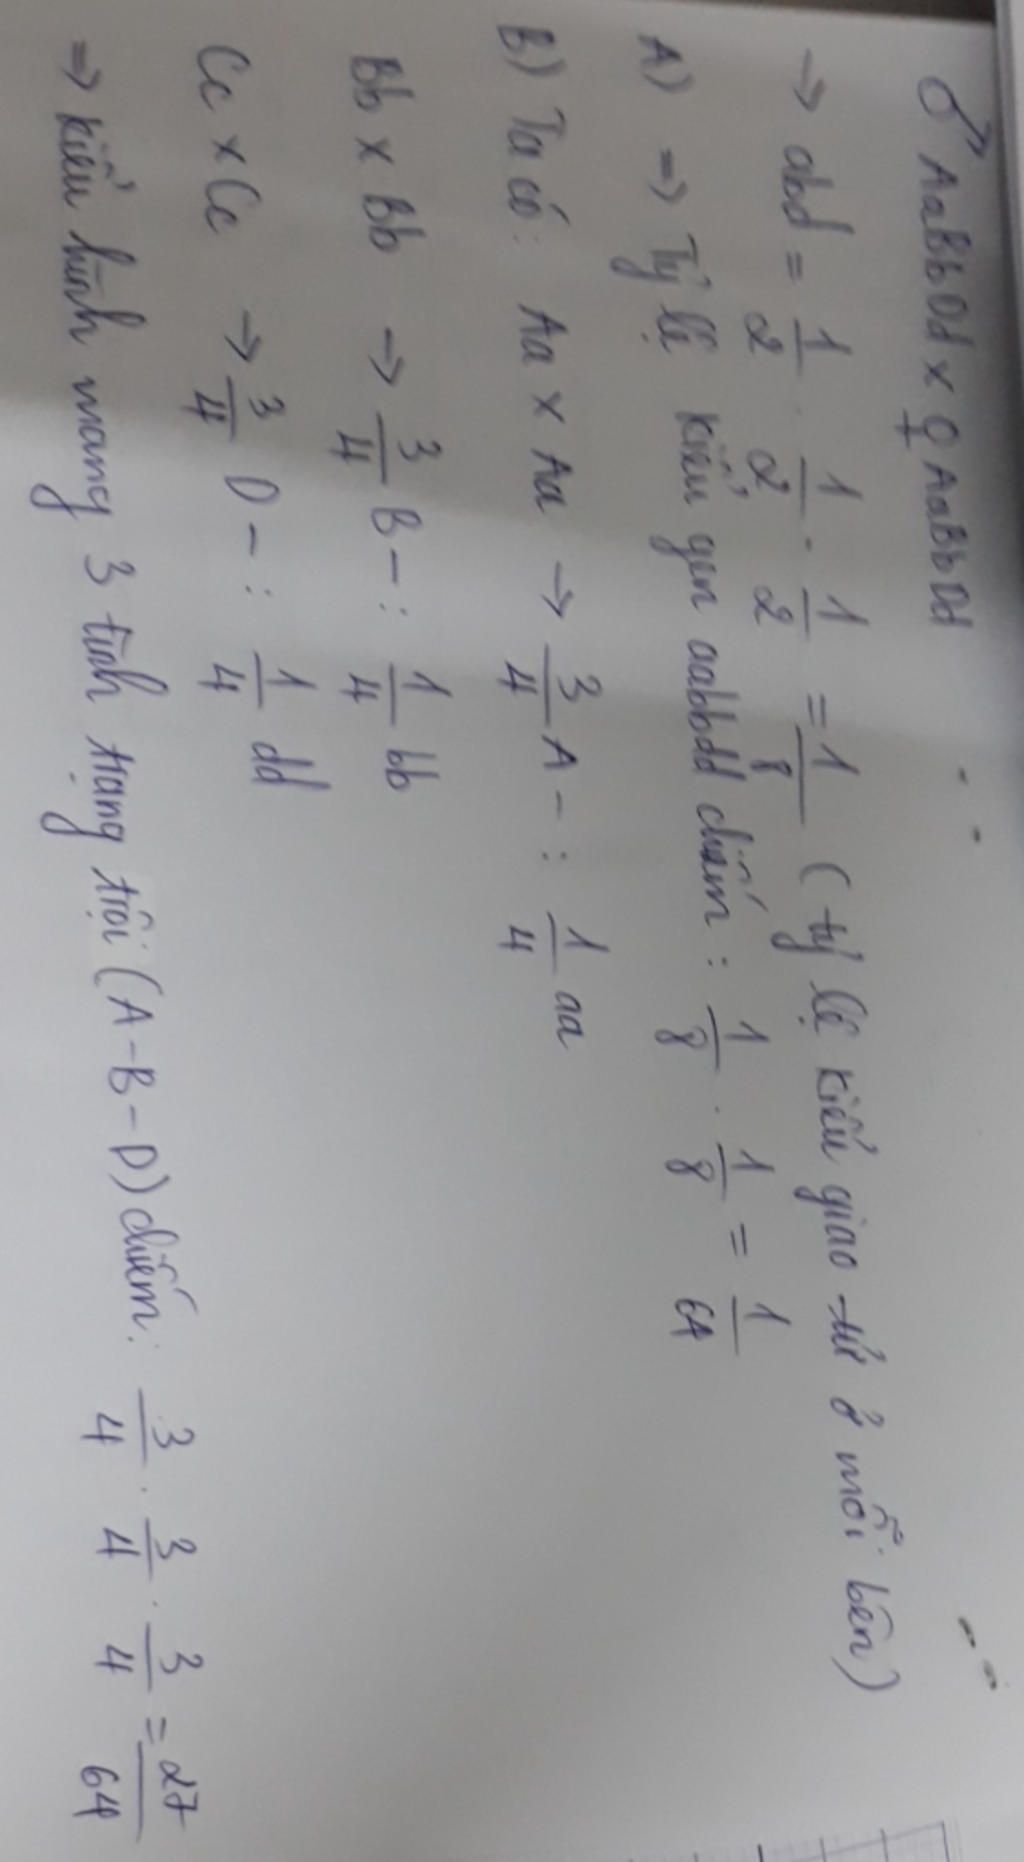 ♂ AaBbDd x ♀ AaBbDd
→ abd = 1/2 . 1/2 . 1/2 = 1/8 (tỷ lệ kiểu giao tử ở mỗi bên)
A) => Tỷ lệ kiểu gen aabbdd chiếm : 1/8 . 1/8 = 1/64
B) Ta có : Aa x Aa → 3/4 A - : 1/4 aa
Bb x Bb → 3/4 B - : 1/4 bb
Cc x Cc → 3/4 D - : 1/4 dd
=> kiểu hình mang 3 tính trạng trội (A-B-D) chiếm : 3/4 . 3/4 . 3/4 = 27/64